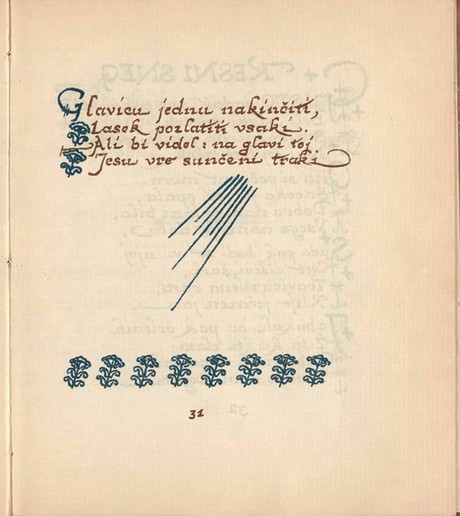 Glavicu jednu nakinčiti,
Lasek pozlatiti vsaki.
Ali bi videl: na glavi toj
Jesu vre sunčeni traki
31